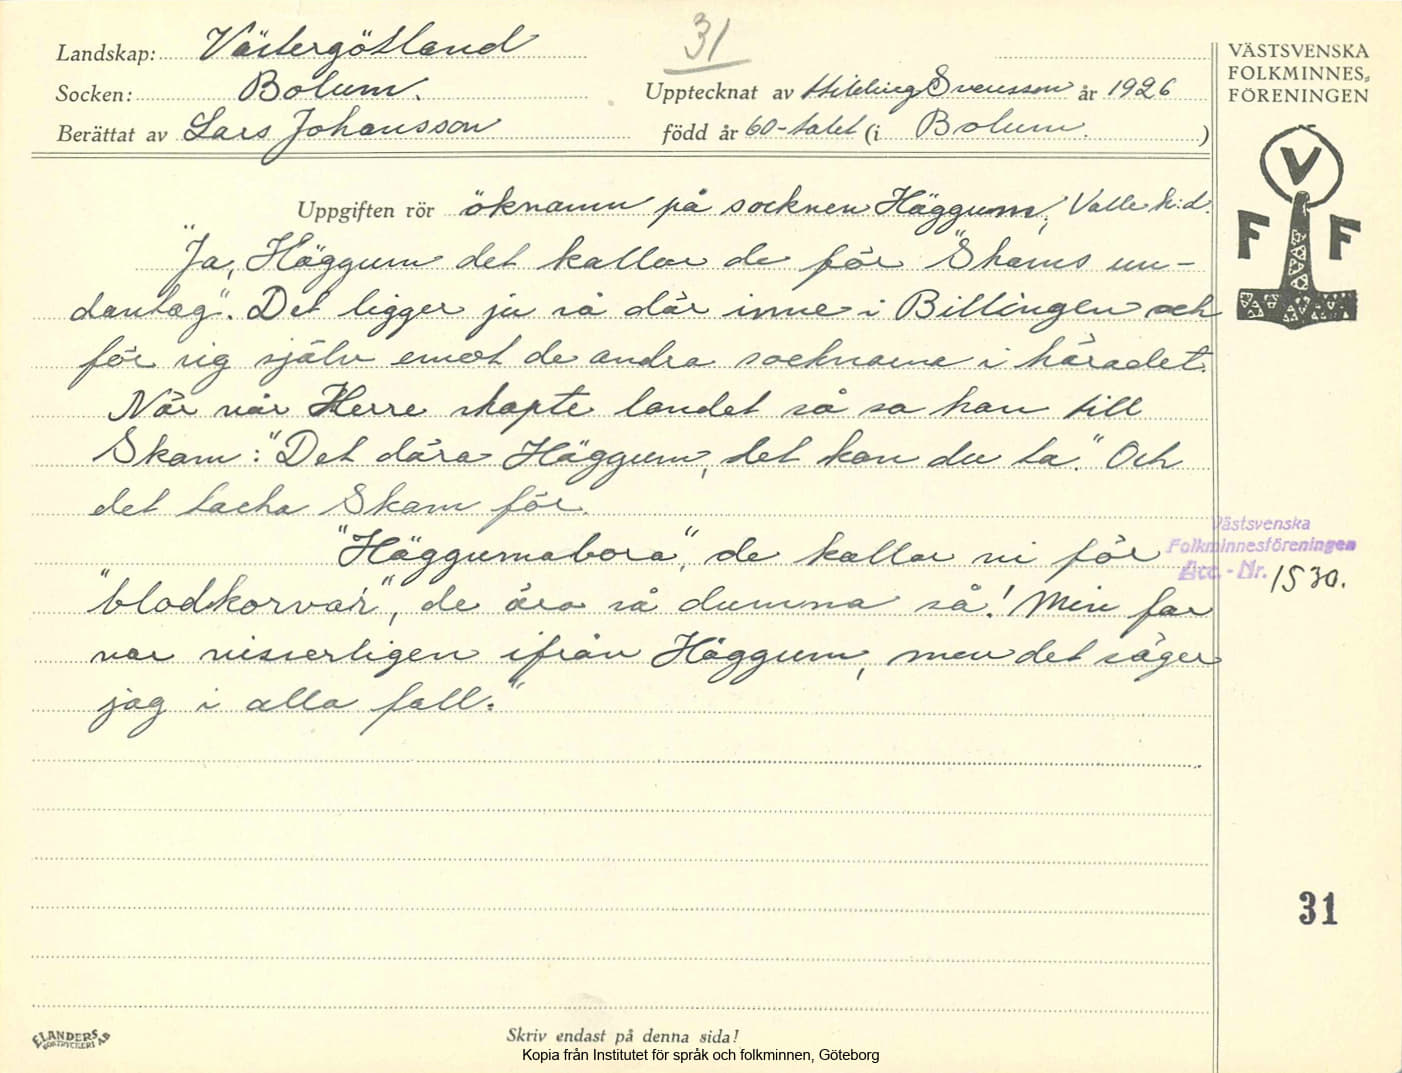 31
Landskap: Västergötland
Socken: Bolum.
Upptecknat av Hilding Svensson år 1926
Berättat av Lars Johansson född år 60-talet (i Bolum.)
VÄSTSVENSKA
FOLKMINNES-
FÖRENINGEN
V
F F
Uppgiften rör öknamn på socknen Häggum, Valle h:d.
"Ja, Häggum det kallar de för "Skams un-
dantag". Det ligger ju så där inne i Billingen och
för sig själv emot de andra socknarna i häradet.
När vår Herre skapte landet så sa han till
Skam: "Det dära Häggum, det kan du ta." Och
det tacka Skam för.
"Häggumabora", de kallar vi för
"blodkorvar", de ära så dumma så! Min far
var visserligen ifrån Häggum, men det säger
jag i alla fall."
Västsvenska
Folkminnesföreningen
Acc.-Nr. 1530.
31
ELANDERS
BOKTRYCKERI AB
Skriv endast på denna sida!
Kopia från Institutet för språk och folkminnen, Göteborg